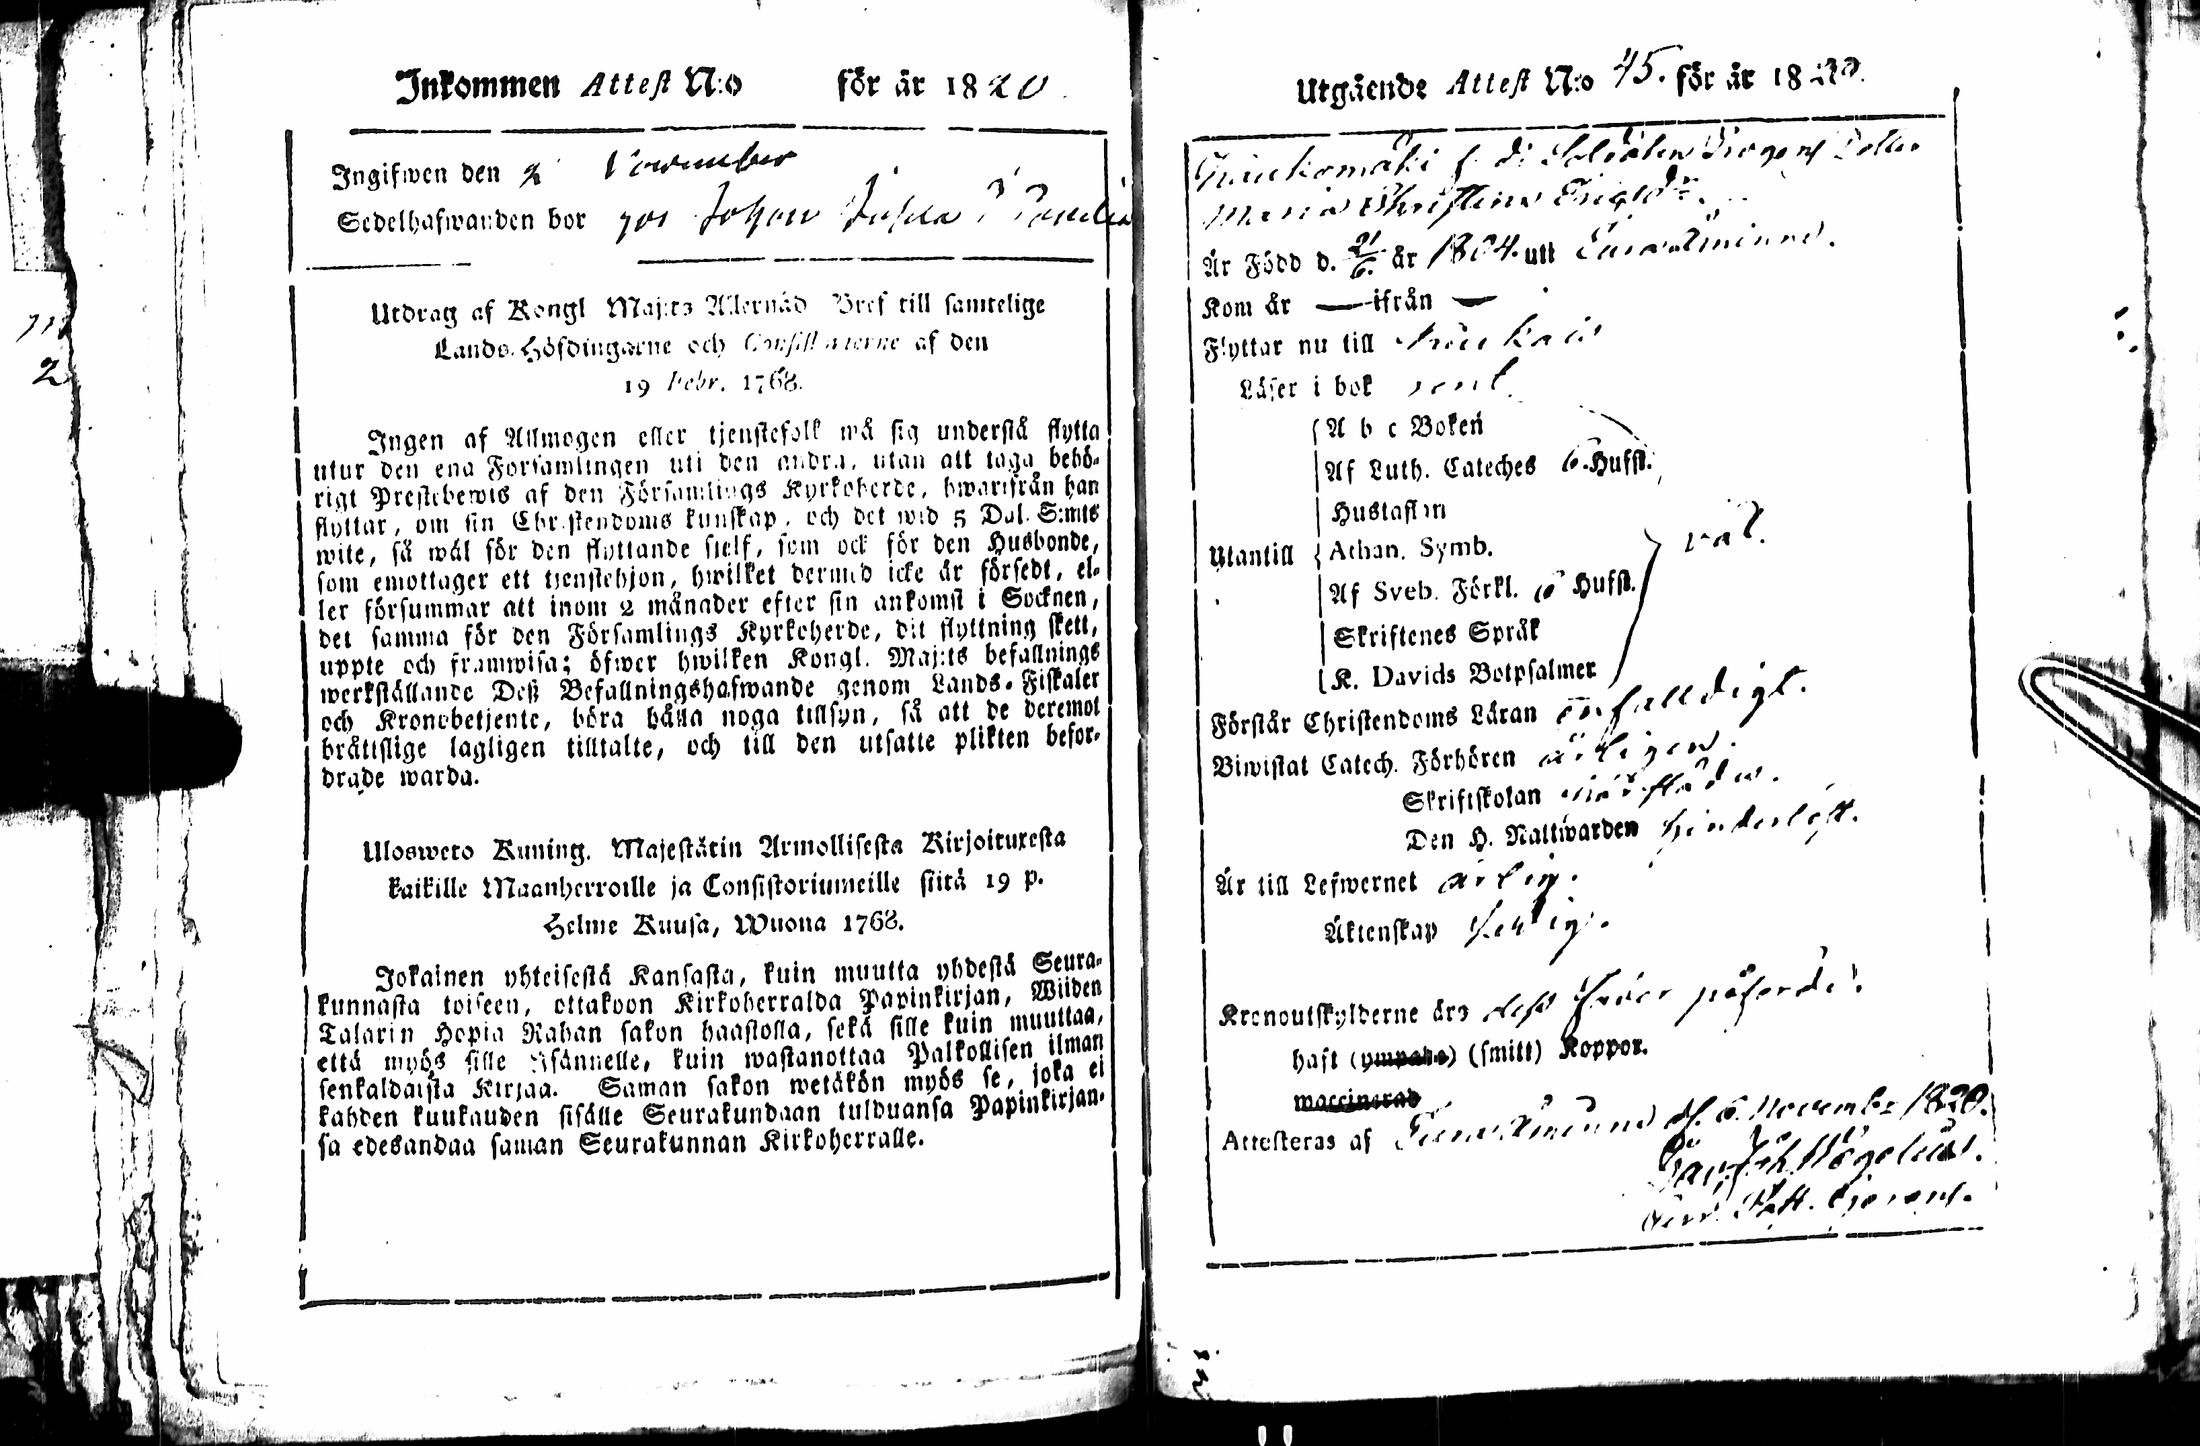 Inkommen Attest N:o för år 1820.
Ingifwen den 2 November
Sedelhafwanden bor hos Johan
Utdrag af Kongl Maj:ts Allernåd Bref till samtelige
Lands-Höfdingarne och Consistorierne af den
19 Febr. 1768.
Ingen af Allmogen eller tjenstefolk må sig understå flytta
utur den ena Församlingen uti den andra, utan att taga behö-
rigt Prestebewis af den Församlings Kyrkoherde, hwarifrån han
flyttar, om sin Christendoms kunskap, och det wid 5 Dal. S:mts
wite, så wäl för den flyttande sjelf, som ock för den Husbonde,
som emottager ett tjenstehjon, hwilket dermed icke är försedt, el-
ler försummar att inom 2 månader efter sin ankomst i Socknen,
det samma för den Församlings Kyrkoherde, dit flyttning skett,
uppte och framwisa; öfwer hwilken Kongl. Maj:ts befallnings
werkställande Deß Befallningshafwande genom Lands-Fiskaler
och Kronobetjente, böra hålla noga tillsyn, så att de deremot
bråttslige lagligen tilltalte, och till den utsatte plikten befor-
drade warda.
Ulosweto Kuning. Majestätin Armollisesta Kirjoituxesta
kaikille Maanherroille ja Consistoriumeille siitä 19 p.
Helme Kuusa, Wuona 1768.
Jokainen yhteisestä Kansasta, kuin muutta yhdestä Seura-
kunnasta toiseen, ottakoon Kirkoherralda Papinkirjan, Wiiden
Talarin Hopia Rahan sakon haastolla, sekä sille kuin muuttaa,
että myös sille Isännelle, kuin wastanottaa Palkollisen ilman
senkaldaista Kirjaa. Saman sakon wetäkön myös se, joka ei
kahden kuukauden sisälle Seurakundaan tulduansa Papinkirjan-
sa edesandaa saman Seurakunnan Kirkoherralle.
Utgående Attest N:o 45. för år 1820.
Maria Christina
Är Född d. 21/6. år 1804. utі Eura Åminne.
Kom år — ifrån —
Flyttar nu till
Läser i bok rent
A b c Boken
Af Luth. Cateches 6. Hufst.
Hustaflan
Utantill Athan. Symb. väl.
Af Sveb. Förkl. 6 Hufst.
Skriftenes Språk
K. Davids Botpsalmer
Förstår Christendoms Läran enfalldigt.
Biwistat Catech. Förhören årligen.
Skriftskolan
Den H. Nattwarden
Är till Lefwernet ärlig.
Äktenskap ledig.
Kronoutskylderne äro
haft (ympade) (smitt) Koppor.
waccinerad
Attesteras af Eura Åminne d. 6. November 1820.